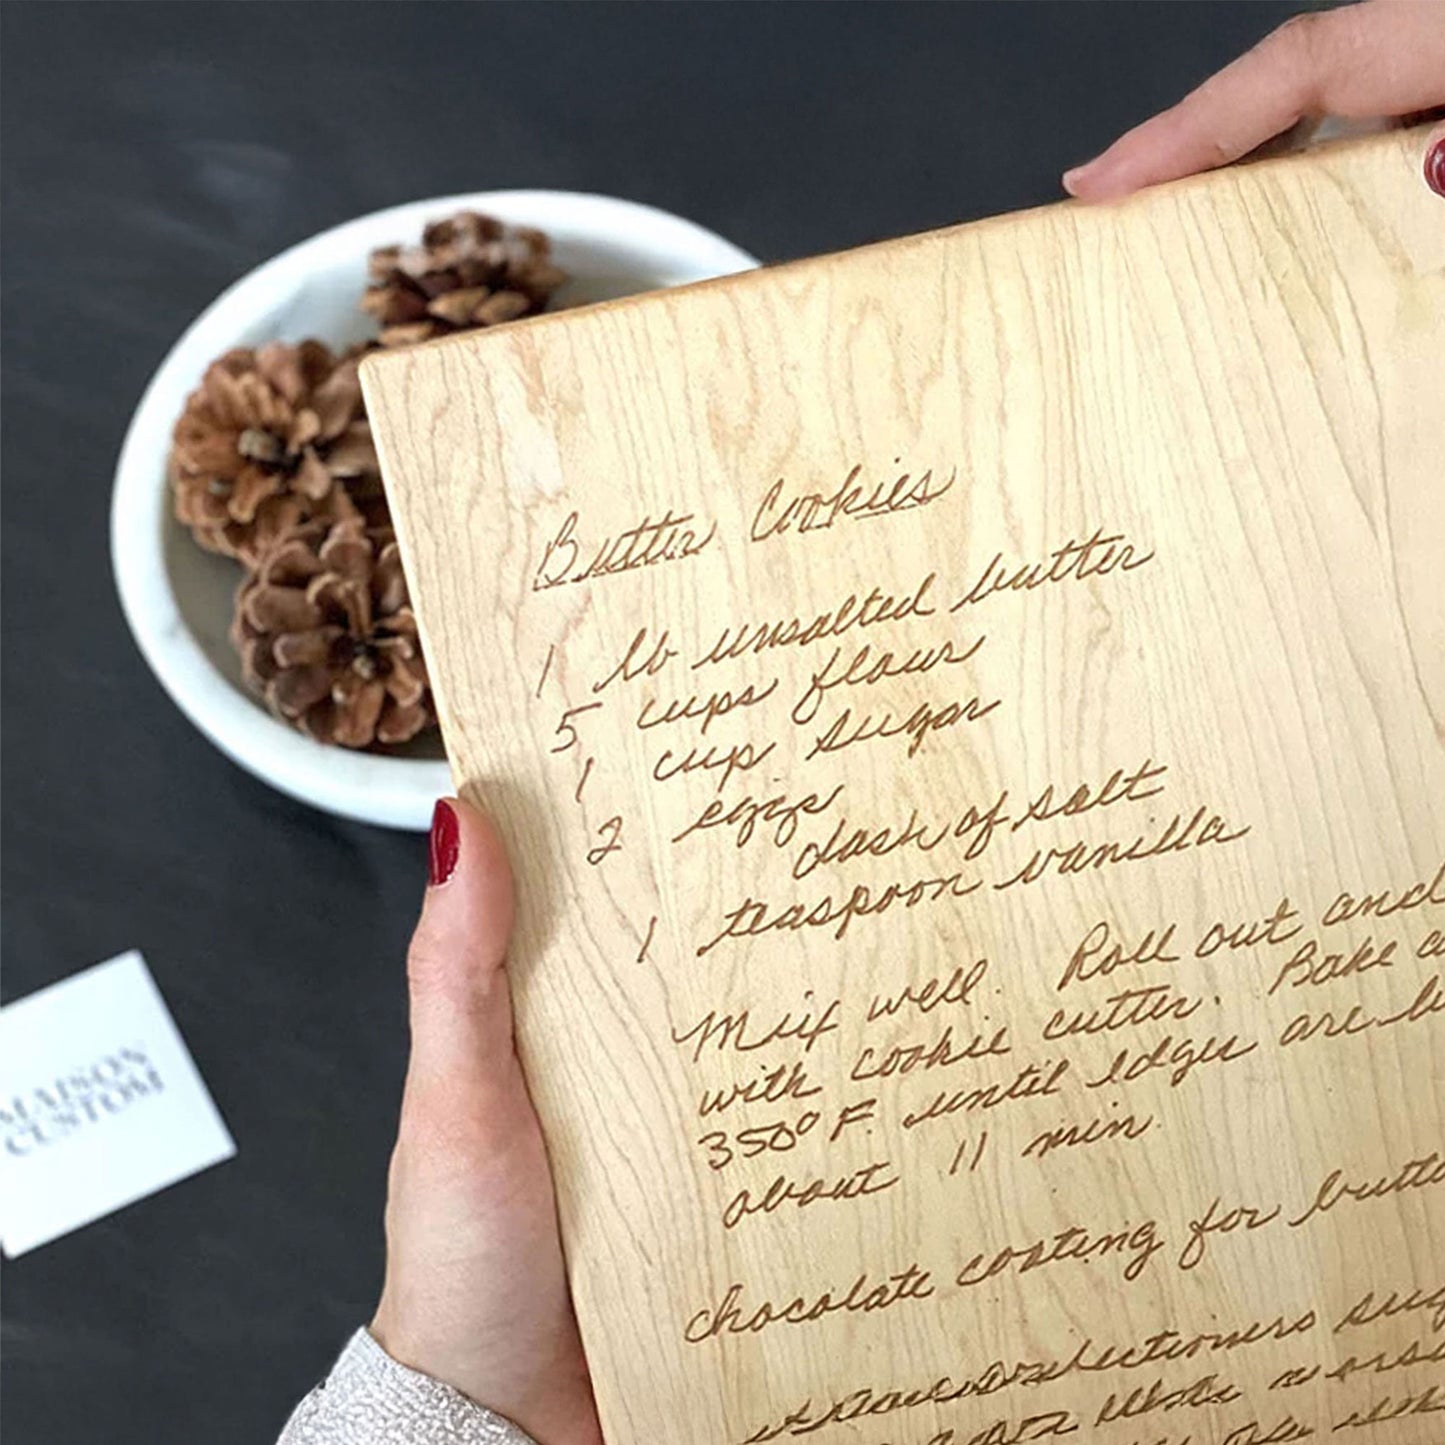 Butter Cookies
1 lb unsalted butter
5 cups flour
1 cup sugar
2 eggs
dash of salt
1 teaspoon vanilla
Mix well. Roll out and
with cookie cutter. Bake
350° F. until edges are
about 11 min.
chocolate coating for
confectioners
MAISON
CUSTOM